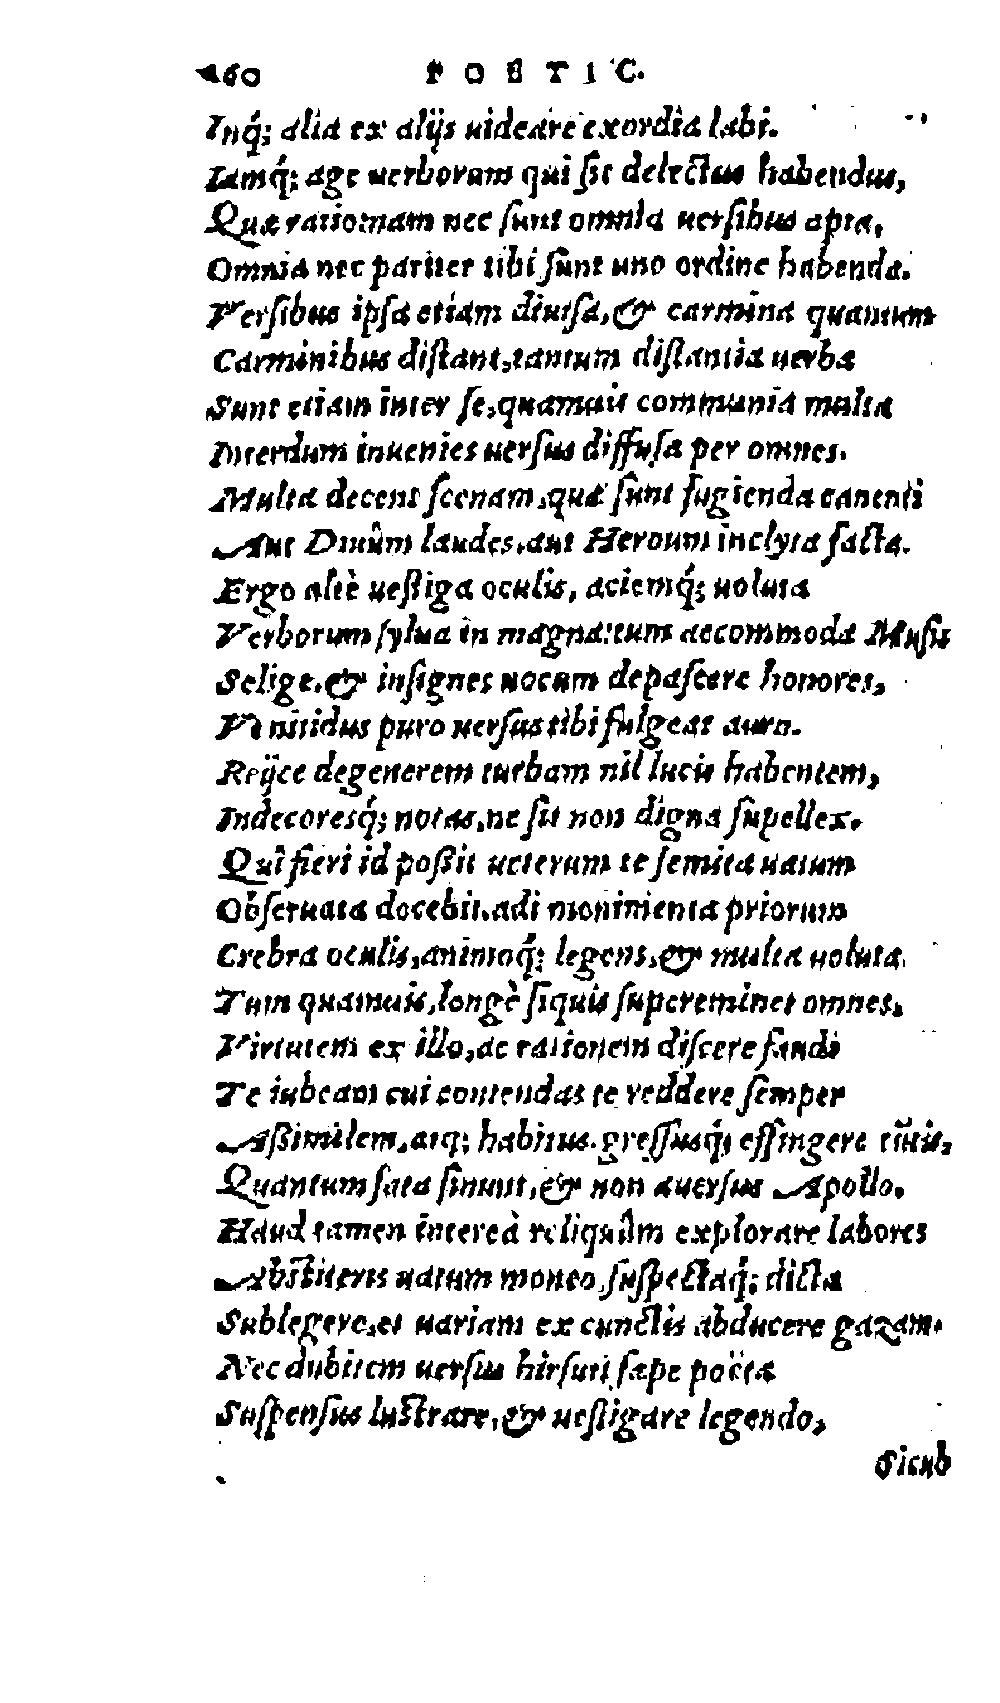 60 POETIC.
Inq́; alia ex alijs uideare exordia labi.
Iamq́; age uerborum qui sit delectus habendus,
Quæ ratio: nam nec sunt omnia uersibus apta,
Omnia nec pariter tibi sunt uno ordine habenda.
Versibus ipsa etiam diuisa, & carmina quantum
Carminibus distant, tantum distantia uerba
Sunt etiam inter se, quamuis communia multa
Interdum inuenies uersus diffusa per omnes.
Multa decent scenam, quæ sunt fugienda canenti
Aut Diuûm laudes, aut Heroum inclyta facta.
Ergo altè uestiga oculis, aciemq́; uoluta
Verborum sylua in magna: tum accommoda Musis
Selige, & insignes uocum depascere honores,
Vt nitidus puro uersus tibi fulgeat auro.
Reijce degenerem turbam nil lucis habentem,
Indecoresq́; notas, ne sit non digna supellex.
Quî fieri id possit ueterum te semita uatum
Obseruata docebit. adi monimenta priorum
Crebra oculis, animoq́; legens, & multa uoluta.
Tum quamuis, longè siquis supereminet omnes,
Virtutem ex illo, ac rationem discere fandi
Te iubeam cui contendas te reddere semper
Assimilem, atq; habitus. gressusq́; effingere euntis,
Quantum fata sinunt, & non auersus Apollo.
Haud tamen intereà reliquûm explorare labores
Abstiteris uatum moneo, suspectaq́; dicta
Sublegere, et uariam ex cunctis abducere gazam.
Nec dubitem uersus hirsuti sæpe poëtæ
Suspensus lustrare, & uestigare legendo,
Sicub